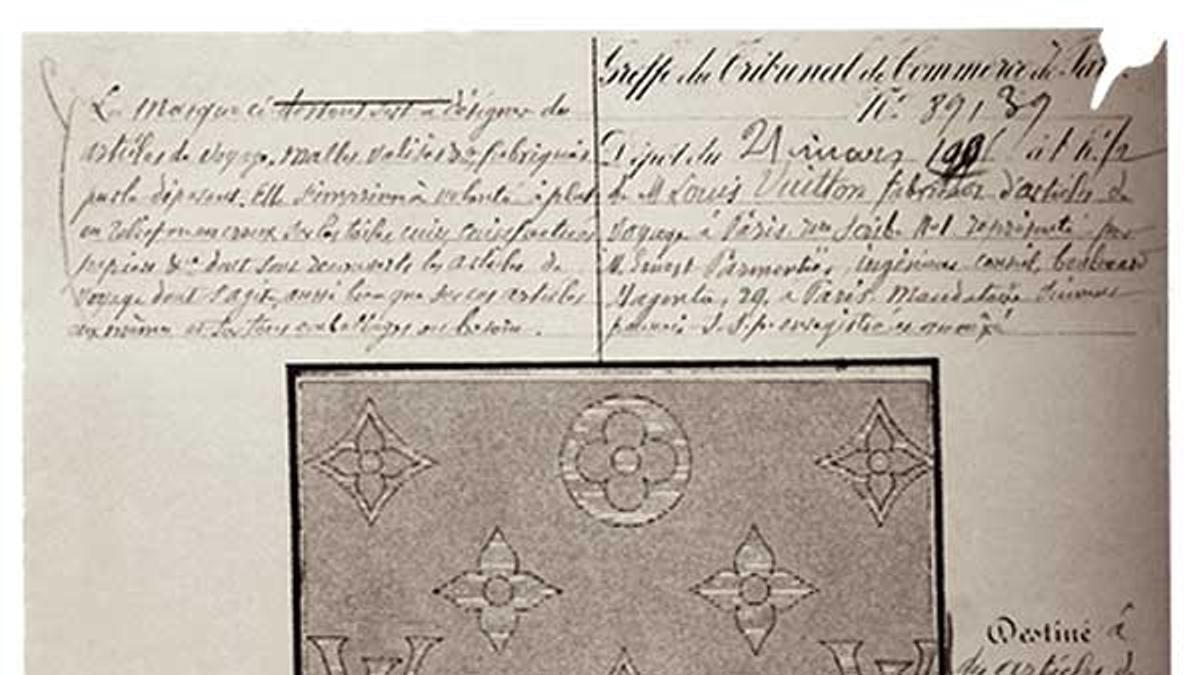 La marque ci dessous est à désigner des
articles de voyage, malles valises &a fabriqués
par le déposant. Elle s'imprime à volonté à plat
en relief ou en creux sur les toiles cuirs cuirs factices
papiers &a dont sont recouverts les articles de
voyage dont s'agit, aussi bien que sur ces articles
eux mêmes et sur tous emballages au besoin.
Greffe du Tribunal de Commerce de
N° 89,139
Dépôt du 21 mars à 1 h 1/2
de M. Louis Vuitton d'articles de
voyage à Paris rue Scribe N°1 représenté par
M. Ernest Parmentier, ingénieur conseil, boulevard
Magenta, 29, à Paris. Mandataire
pouvoir S.S.p. enregistré et annexé
Destiné à
des articles de